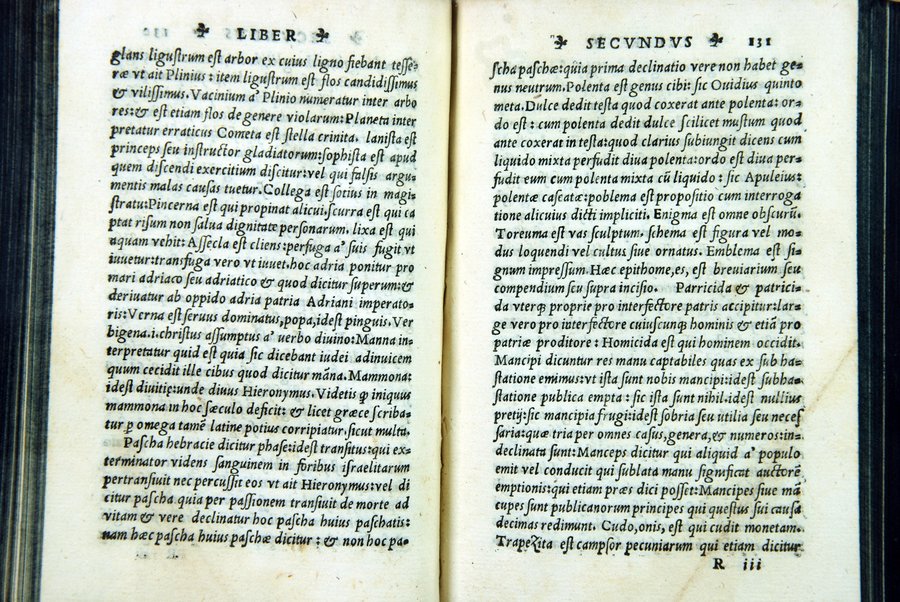 LIBER
glans ligustrum est arbor ex cuius ligno fiebant tesse=
ræ vt ait Plinius: item ligustrum est flos candidissimus
& vilissimus. Vacinium a' Plinio numeratur inter arbo
res: & est etiam flos de genere violarum: Planeta inter
pretatur erraticus Cometa est stella crinita. lanista est
princeps seu instructor gladiatorum: sophista est apud
quem discendi exercitium discitur: vel qui falsis argu=
mentis malas causas tuetur. Collega est sotius in magi=
stratu: Pincerna est qui propinat alicui. scurra est qui ca
ptat risum non salua dignitate personarum. lixa est qui
aquam vehit: Assecla est cliens: perfuga a' suis fugit vt
iuuetur: transfuga vero vt iuuet. hoc adria ponitur pro
mari adriaco seu adriatico & quod dicitur superum: &
deriuatur ab oppido adria patria Adriani imperato=
ris: Verna est seruus dominatus, popa, idest pinguis. Ver
bigena.i.christus assumptus a' uerbo diuino: Manna in=
terpretatur quid est quia sic dicebant iudei adinuicem
quum cecidit ille cibus quod dicitur māna. Mammona:
idest diuitiæ: unde diuus Hieronymus. Videtis ꝙ iniquus
mammona in hoc sæculo deficit: & licet græce scriba=
tur p omega tamē latine potius corripiatur. sicut multa.
Pascha hebracie dicitur phase: idest transitus: qui ex=
terminator videns sanguinem in foribus israelitarum
pertransiuit nec percussit eos vt ait Hieronymus: vel di
citur pascha quia per passionem transiuit de morte ad
vitam & vere declinatur hoc pascha huius paschatis:
nam hæc pascha huius paschæ dicitur: & non hoc pa=
SECVNDVS 131
scha paschæ: quia prima declinatio vere non habet ge=
nus neutrum. Polenta est genus cibi: sic Ouidius quinto
meta. Dulce dedit testa quod coxerat ante polenta: or=
do est: cum polenta dedit dulce scilicet mustum quod
ante coxerat in testa: quod clarius subiungit dicens cum
liquido mixta perfudit diua polenta: ordo est diua per=
fudit eum cum polenta mixta cū liquido: sic Apuleius:
polentæ caseatæ: poblema est propositio cum interroga
tione alicuius dicti impliciti. Enigma est omne obscurū.
Toreuma est vas sculptum. schema est figura vel mo=
dus loquendi vel cultus siue ornatus. Emblema est si=
gnum impressum. Hæc epithome, es, est breuiarium seu
compendium seu supra incisio. Parricida & patrici=
da vterq; proprie pro interfectore patris accipitur: lar=
ge vero pro interfectore cuiuscunq; hominis & etiā pro
patriæ proditore: Homicida est qui hominem occidit.
Mancipi dicuntur res manu captabiles quas ex sub ha=
statione emimus: vt ista sunt nobis mancipi: idest subha=
statione publica empta: sic ista sunt nihil. idest nullius
pretij: sic mancipia frugi: idest sobria seu utilia seu necef
saria: quæ tria per omnes casus, genera, & numeros: in=
declinata sunt: Manceps dicitur qui aliquid a' populo
emit vel conducit qui sublata manu significat auctorē
emptionis: qui etiam præs dici posset: Mancipes siue mā
cupes sunt publicanorum principes qui questus sui causa
decimas redimunt. Cudo, onis, est qui cudit monetam.
Trapezita est campsor pecuniarum qui etiam dicitur
R iii